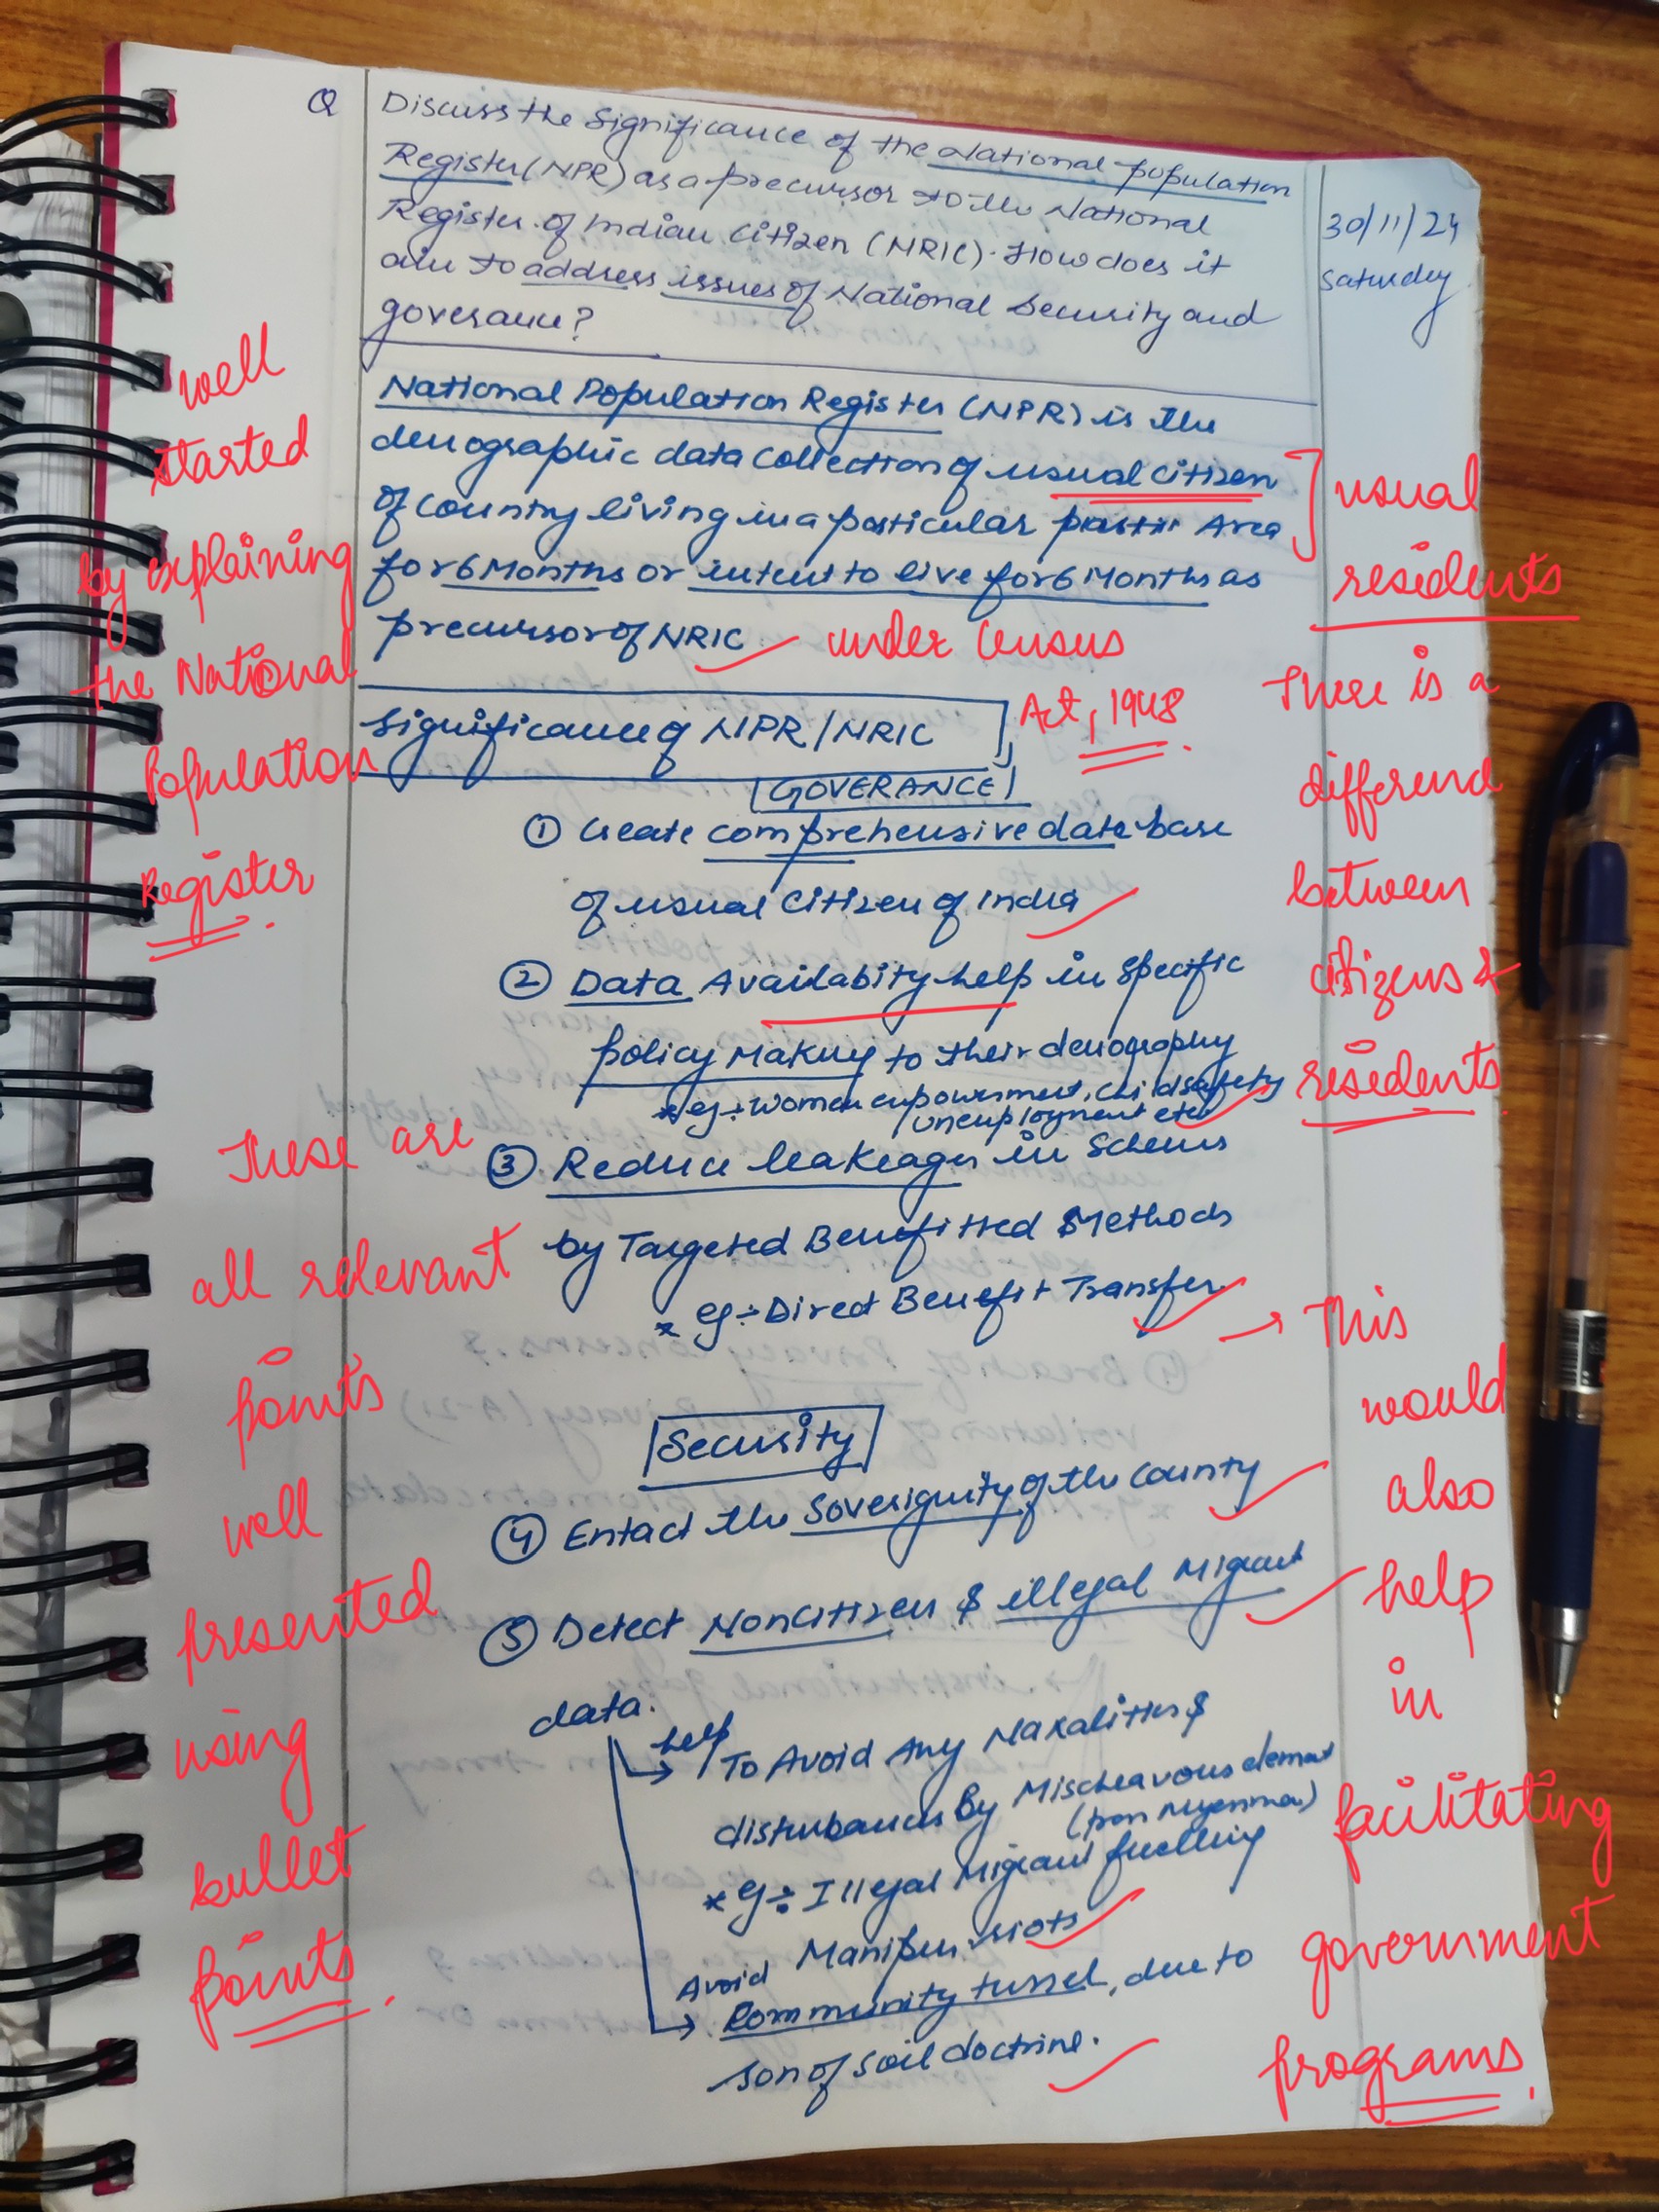 Q Discuss the Significance of the National population
Register (NPR) as a precursor to the National
Register of Indian Citizen (NRIC). How does it
aim to address issues of National Security and
goverance?
30/11/24
Saturday
National Population Register (NPR) is the
demographic data collection of usual citizen
of country living in a particular Area
for 6 Months or intent to live for 6 Months as
precursor of NRIC
under Census
Act, 1948
usual
residents
There is a
differend
between
citizens &
residents
well
started
by explaining
the National
Population
Register.
Significance of NPR/NRIC
GOVERANCE
① Create comprehensive data base
of usual citizen of India
② Data Availabity help in specific
policy Making to their demography
* eg:- women empowerment, child safety
unemployment etc
③ Reduce leakages in Schems
by Targeted Benefitted Methods
* eg:- Direct Benefit Transfer
→ This
would
also
help
in
facilitating
government
programs.
These are
all relevant
points
well
presented
using
bullet
points.
Security
④ Entact the Soverignity of the county
⑤ Detect Noncitizen & illegal Migrant
data.
help
→ To Avoid Any Naxalities &
disturbances By Mischeavous element
(from Myanmar)
* eg:- Illegal Migrant fuelling
Manipur riots
Avoid
→ Community tussel, due to
son of soil doctrine.